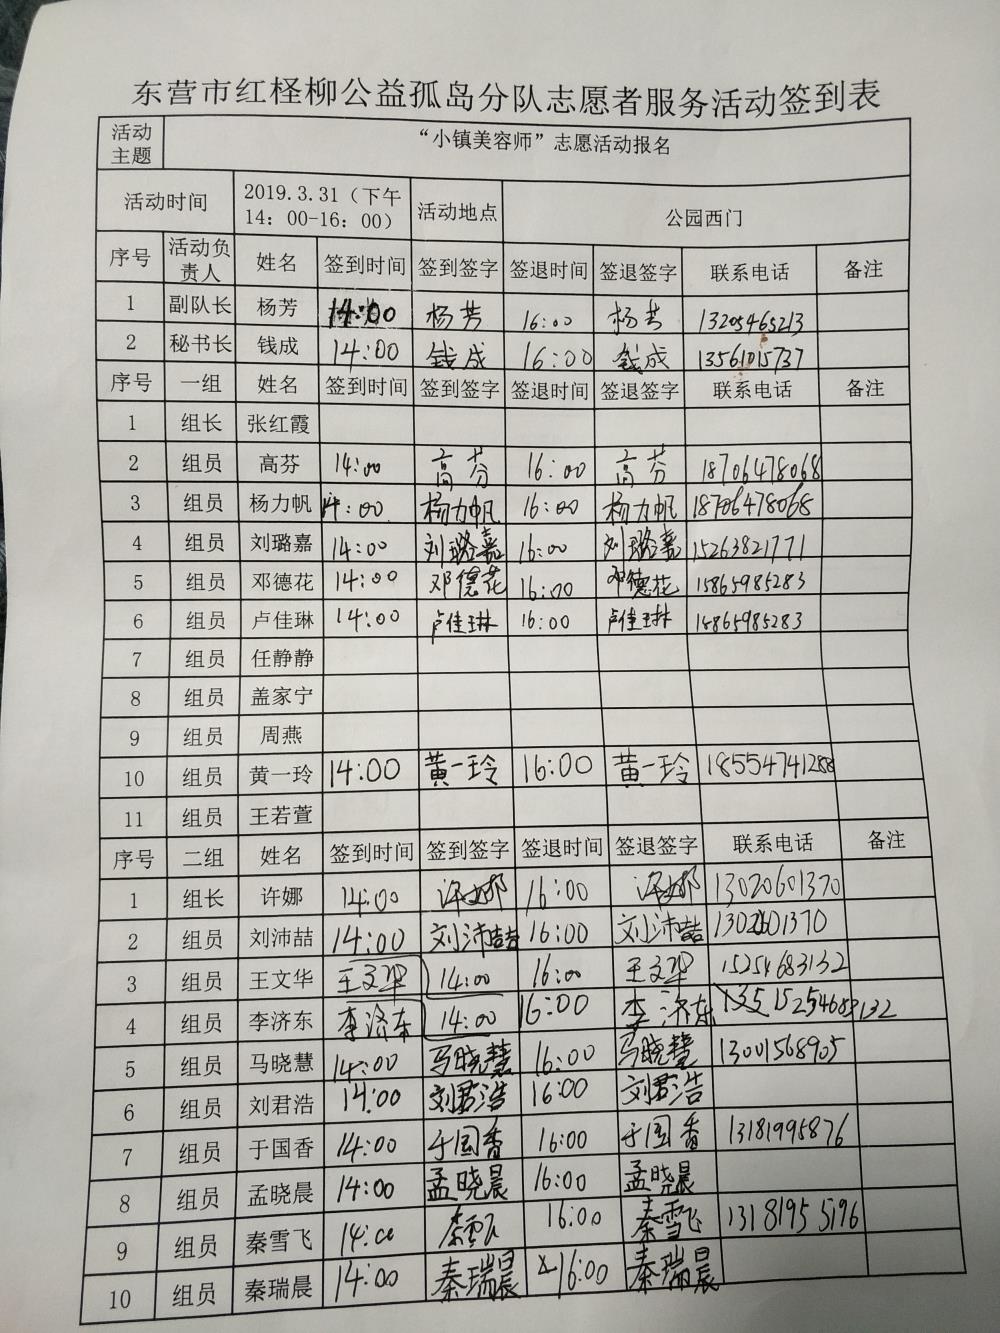 东营市红柽柳公益孤岛分队志愿者服务活动签到表
活动主题 “小镇美容师”志愿活动报名
活动时间 2019.3.31（下午14：00-16：00） 活动地点 公园西门
序号 活动负责人 姓名 签到时间 签到签字 签退时间 签退签字 联系电话 备注
1 副队长 杨芳 14:00 杨芳 16:00 杨芳 13205465213
2 秘书长 钱成 14:00 钱成 16:00 钱成 13561015737
序号 一组 姓名 签到时间 签到签字 签退时间 签退签字 联系电话 备注
1 组长 张红霞
2 组员 高芬 14:00 高芬 16:00 高芬 18706478068
3 组员 杨力帆 14:00 杨力帆 16:00 杨力帆 18706478068
4 组员 刘璐嘉 14:00 刘璐嘉 16:00 刘璐嘉 15263821771
5 组员 邓德花 14:00 邓德花 16:00 邓德花 15865985283
6 组员 卢佳琳 14:00 卢佳琳 16:00 卢佳琳 15865985283
7 组员 任静静
8 组员 盖家宁
9 组员 周燕
10 组员 黄一玲 14:00 黄一玲 16:00 黄一玲 18554741288
11 组员 王若萱
序号 二组 姓名 签到时间 签到签字 签退时间 签退签字 联系电话 备注
1 组长 许娜 14:00 许娜 16:00 许娜 13020601370
2 组员 刘沛喆 14:00 刘沛喆 16:00 刘沛喆
3 组员 王文华 王文华 14:00 16:00 王文华 15254683132
4 组员 李济东 李济东 14:00 16:00 李济东
5 组员 马晓慧 14:00 马晓慧 16:00 马晓慧 13001568905
6 组员 刘君浩 14:00 刘君浩 16:00 刘君浩
7 组员 于国香 14:00 于国香 16:00 于国香 13181995876
8 组员 孟晓晨 14:00 孟晓晨 16:00 孟晓晨
9 组员 秦雪飞 14:00 秦雪飞 16:00 秦雪飞 13181955196
10 组员 秦瑞晨 14:00 秦瑞晨 16:00 秦瑞晨